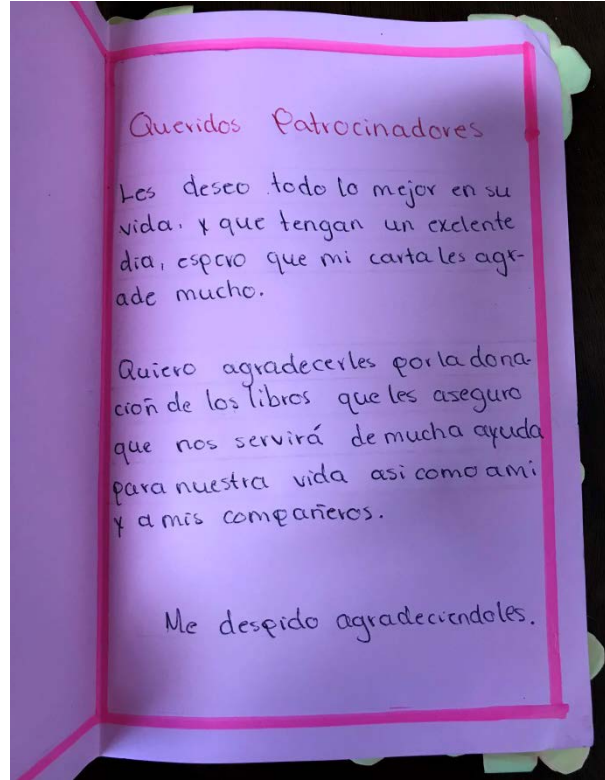 Queridos Patrocinadores
Les deseo todo lo mejor en su
vida, y que tengan un exelente
dia, espero que mi carta les agr-
ade mucho.
Quiero agradecerles por la dona-
cioñ de los libros que les aseguro
que nos servirá de mucha ayuda
para nuestra vida asi como ami
y a mis compañeros.
Me despido agradeciendoles.